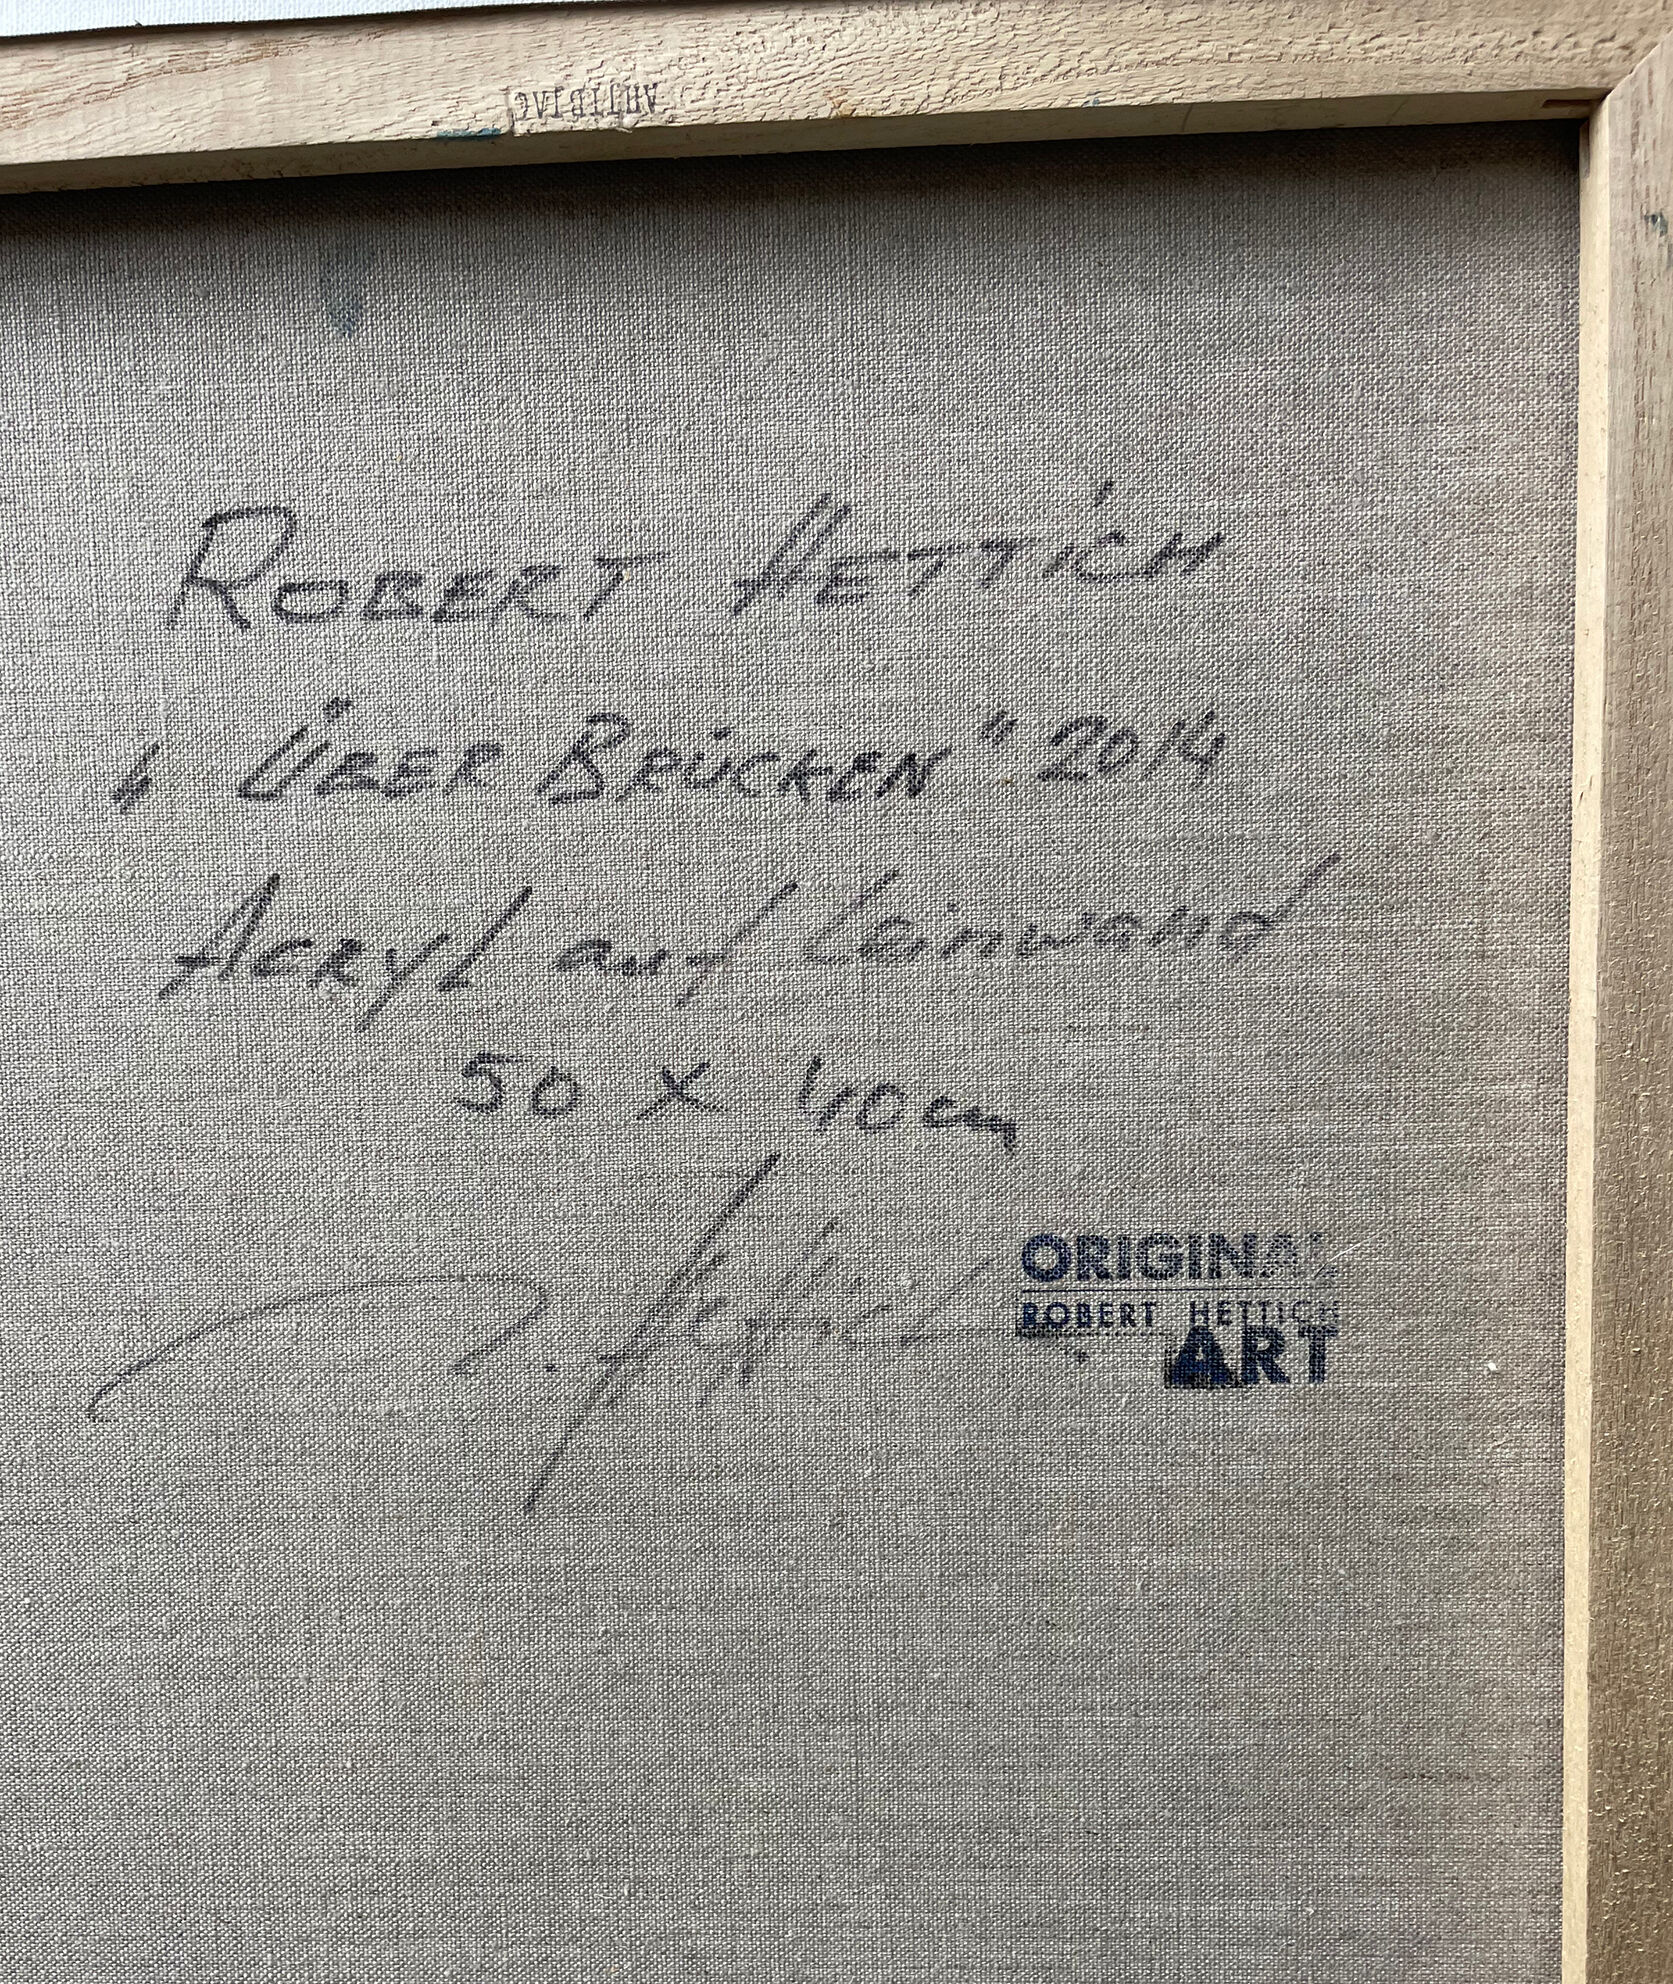 ROBERT HETTICH
„ÜBER BRÜCKEN" 2014
Acryl auf Leinwand
50 x 40cm
R. Hettich
ORIGINAL
ROBERT HETTICH
ART